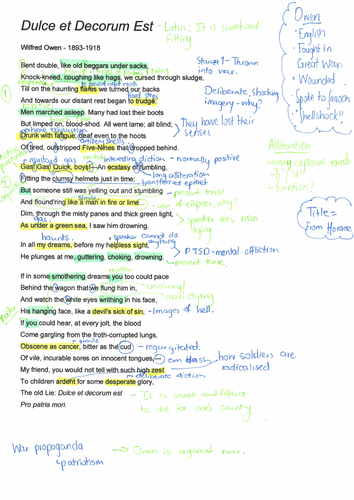 Dulce et Decorum Est - Latin: It is sweet and fitting
Wilfred Owen - 1893-1918
Owen
- English
- Fought in Great War
- Wounded
- Spoke to Sassoon
- Shellshock!!
Stanza 1 - Thrown into war.
Deliberate, shocking imagery - why?
Bent double, like old beggars under sacks,
Knock-kneed, coughing like hags, we cursed through sludge,
Till on the haunting flares we turned our backs
And towards our distant rest began to trudge.
Men marched asleep. Many had lost their boots
But limped on, blood-shod. All went lame; all blind;
They have lost their senses
Drunk with fatigue; deaf even to the hoots
Of tired, outstripped Five-Nines that dropped behind.
mustard gas
interesting diction - normally positive
Gas! Gas! Quick, boys! - An ecstasy of fumbling,
long alliteration
transferred epithet
Fitting the clumsy helmets just in time;
present tense
But someone still was yelling out and stumbling
And flound'ring like a man in fire or lime...
use of elipses, why?
Dim, through the misty panes and thick green light,
speaker sees man dying
As under a green sea, I saw him drowning.
Alliteration
- using explosive sounds
- "d"
- function?
Title = From Horace
haunts
speaker cannot do anything
In all my dreams, before my helpless sight,
PTSD - mental affliction
He plunges at me, guttering, choking, drowning.
present tense
If in some smothering dreams you too could pace
Behind the wagon that we flung him in,
And watch the white eyes writhing in his face,
His hanging face, like a devil's sick of sin;
- images of hell.
If you could hear, at every jolt, the blood
Come gargling from the froth-corrupted lungs,
simile
Obscene as cancer, bitter as the cud - regurgitated.
Of vile, incurable sores on innocent tongues, - em dash
how soldiers are radicalised
My friend, you would not tell with such high zest
deliberate diction
To children ardent for some desperate glory,
The old Lie: Dulce et decorum est
Pro patria mori.
- It is sweet and fitting to die for one's country
War propaganda
patriotism
Owen is against war.